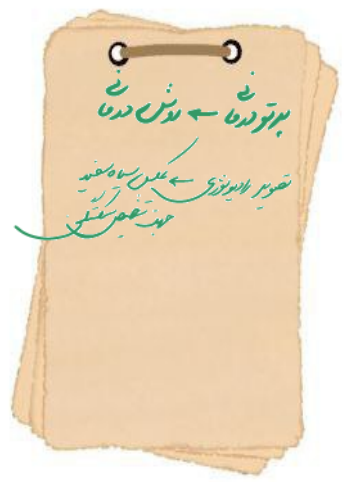 پرتو درمانی ← روش درمانی
تصویر رادیولوژی ← عکس سیاه سفید
جهت تشخیص شکستگی